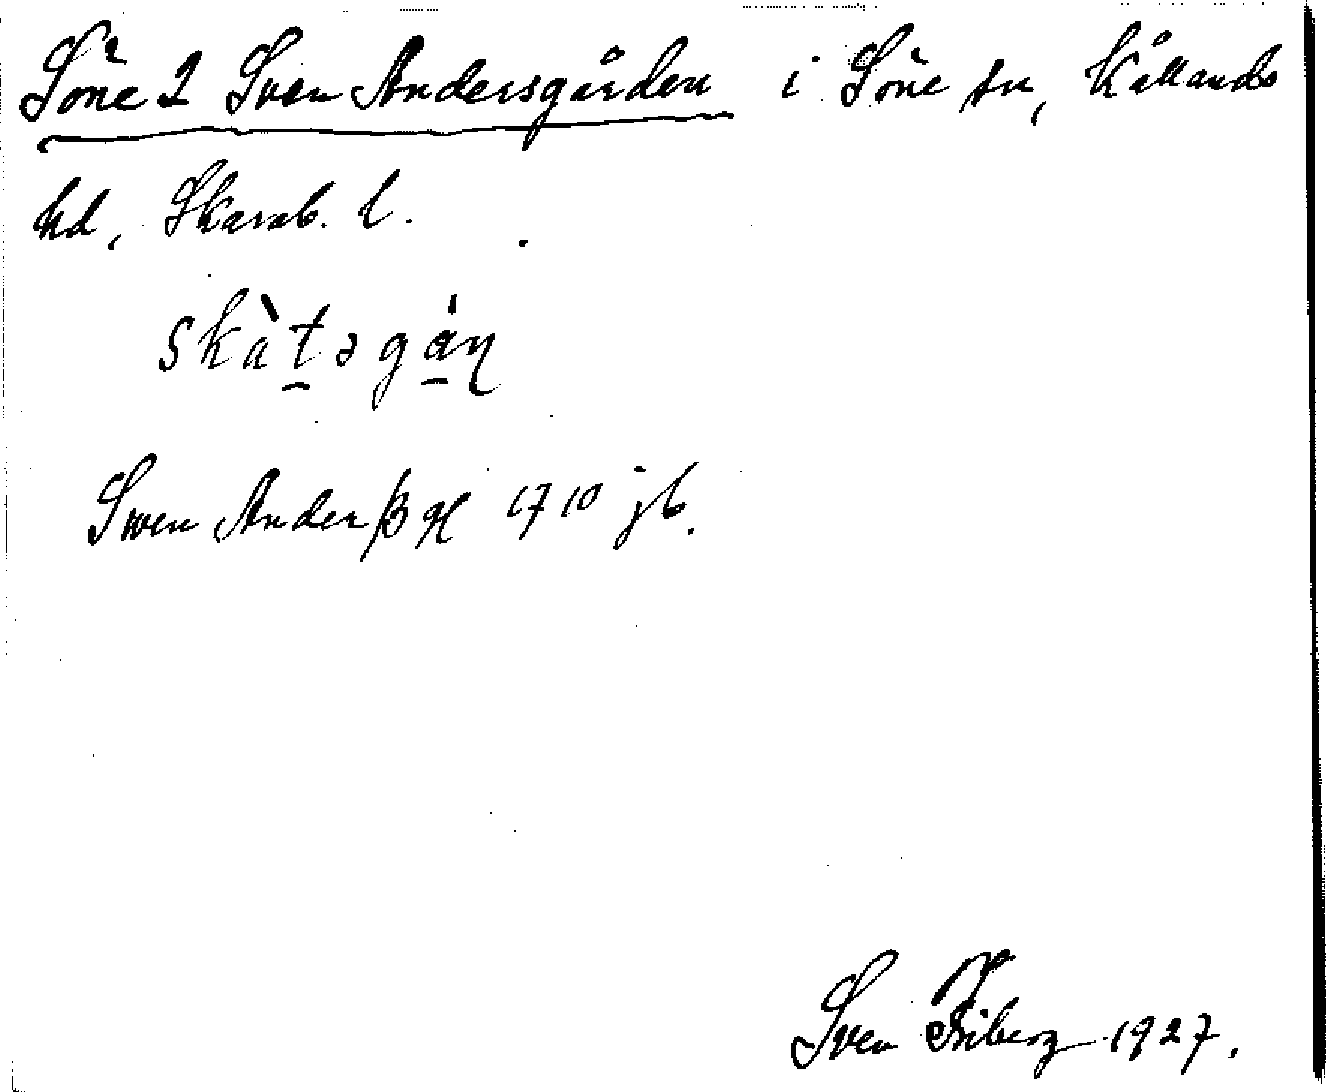 Söne 2 Sven Andersgården i Söne sn, Kållands
hd, Skarab. l.
skàt̲əgå̲ɳ
Swen Anderßg 1710 jb.
Sven Friberg 1927.